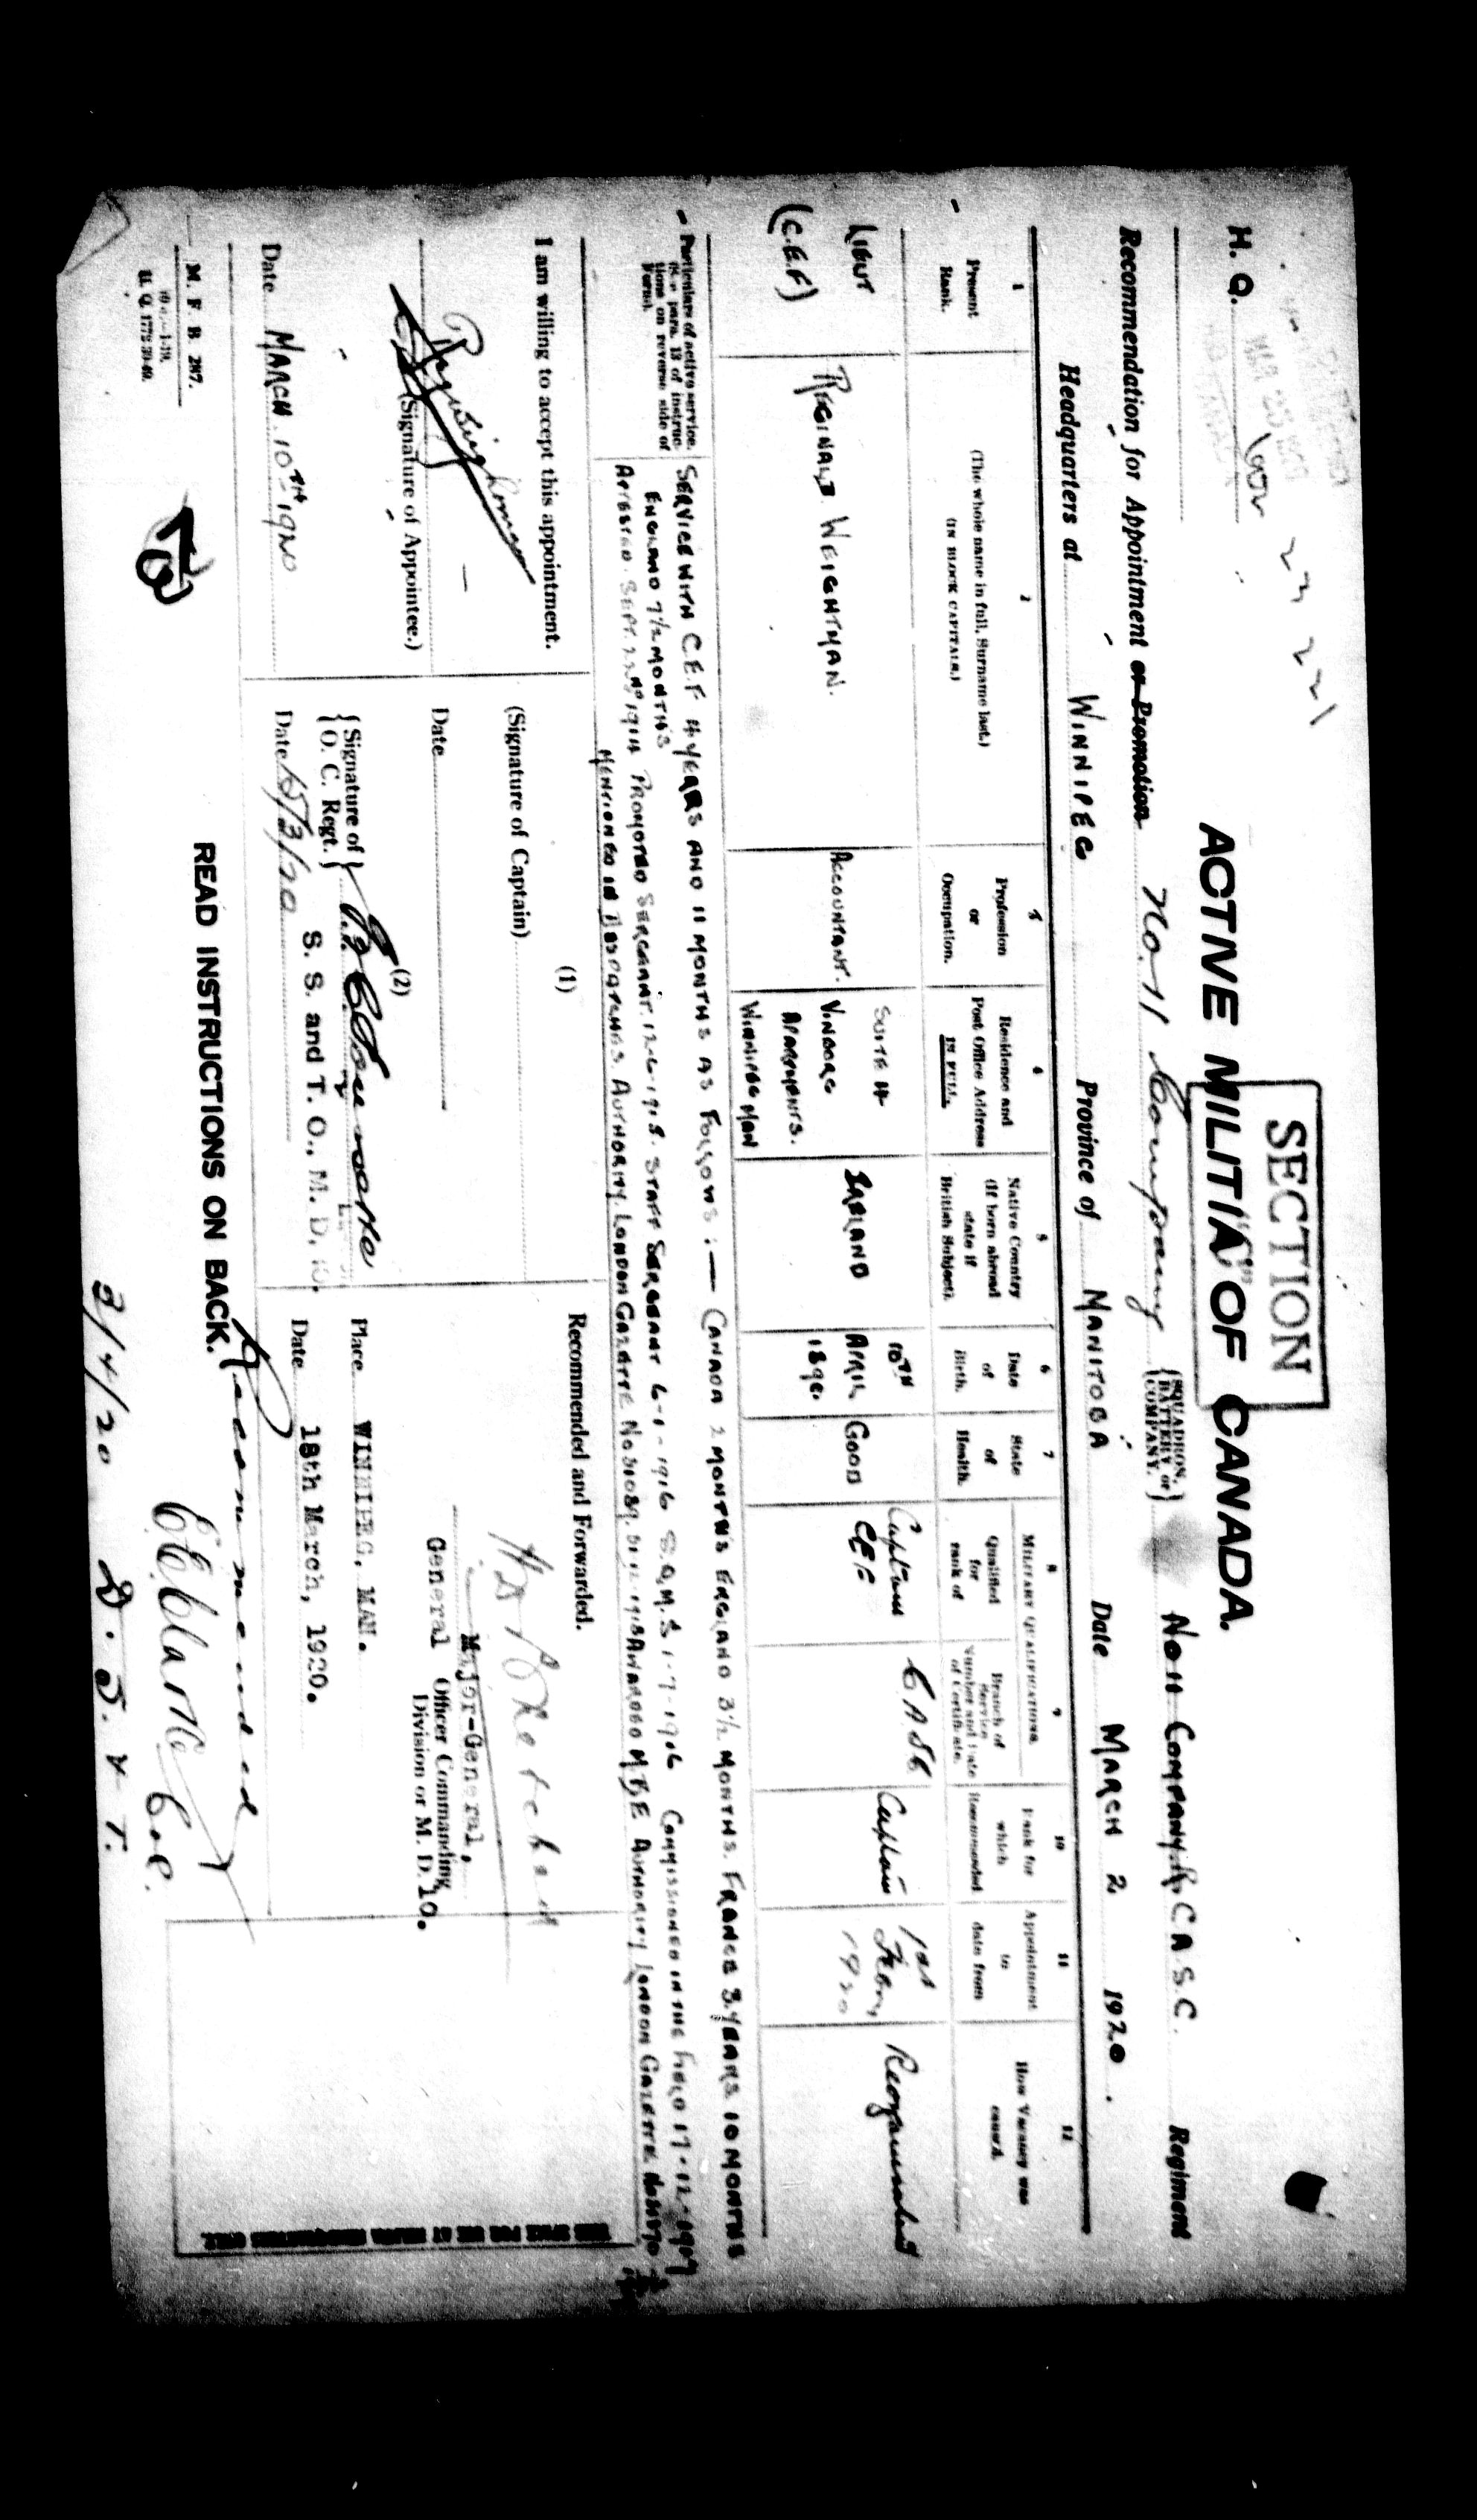 SECTION
"C"
H. Q.
ACTIVE MILITIA OF CANADA.
Recommendation for Appointment or Promotion No. 11 Company {SQUADRON, BATTERY or COMPANY.} No 11 COMPANY R.C.A.S.C. Regiment
Headquarters at WINNIPEG Province of MANITOBA Date MARCH 2 1920.
1 2 3 4 5 6 7 MILITARY QUALIFICATIONS 10 11 12
8 9
Present Rank.
(The whole name in full. Surname last.) (IN BLOCK CAPITALS.)
Profession or Occupation.
Residence and Post Office Address IN FULL.
Native Country (If born abroad state if British Subject).
Date of Birth.
State of Health.
Qualified for rank of
Branch of Service Number and Date of Certificate.
Rank for which Recommended
Appointment to date from
How Vacancy was caused.
LIEUT (C.E.F)
REGINALD WEIGHTMAN.
ACCOUNTANT.
SUITE 4 APARTMENTS. WINNIPEG MAN
10TH APRIL
GOOD
Captain CEF
Captain
1st 1920
- Particulars of active service. (See para. 13 of instructions on reverse side of Form).
SERVICE WITH C.E.F 4 YEARS AND 11 MONTHS AS FOLLOWS:— CANADA 2 MONTHS ENGLAND 3½ MONTHS. FRANCE 3 YEARS 10 MONTHS
ENGLAND 7½ MONTHS
ATTESTED SEPT. 22ND 1914 PROMOTED SERGEANT. 12-6-1915. STAFF SERGEANT 6-1-1916 S.Q.M.S 1-7-1916 COMMISSIONED IN THE FIELD 17-12-1917
MENTIONED IN DESPATCHES AUTHORITY LONDON GAZETTE No 31089. AWARDED M.B.E AUTHORITY LONDON GAZETTE
I am willing to accept this appointment.
(Signature of Appointee.)
Date MARCH 10TH 1920
(1)
(Signature of Captain)
Date
(2)
{Signature of O. C. Regt.}
S. S. and T. O., M. D. 10.
Date 15/3/20
Recommended and Forwarded.
Major-General,
General Officer Commanding
Division or M. D. 10.
Place WINNIPEG, MAN.
Date 18th March, 1920.
M. F. B. 287.
H. Q. 1772-39-40.
READ INSTRUCTIONS ON BACK.
Recommended
3/4/20 D. S. & T.